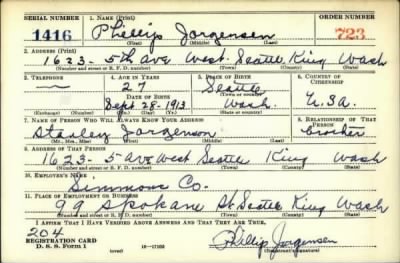 SERIAL NUMBER 1. NAME (Print) ORDER NUMBER
1416 Phillip Jorgensen 723
(First) (Middle) (Last)
2. ADDRESS (Print)
1623- 5th ave West. Seattle King Wash
(Number and street or R. F. D. number) (Town) (County) (State)
3. TELEPHONE 4. AGE IN YEARS 5. PLACE OF BIRTH 6. COUNTRY OF CITIZENSHIP
— 27 Seattle
DATE OF BIRTH
Sept 28-1913 Wash. U.S.A.
(Exchange) (No.) (Mo.) (Day) (Yr.) (State or country)
7. NAME OF PERSON WHO WILL ALWAYS KNOW YOUR ADDRESS 8. RELATIONSHIP OF THAT PERSON
Stanley Jorgenson Brother
(Mr., Mrs., Miss) (First) (Middle) (Last)
9. ADDRESS OF THAT PERSON
1623- 5 Ave West Seattle King Wash
(Number and street or R. F. D. number) (Town) (County) (State)
10. EMPLOYER'S NAME
Simmons Co.
11. PLACE OF EMPLOYMENT OR BUSINESS
99 Spokane St Seattle King Wash
(Number and street or R. F. D. number) (Town) (County) (State)
I AFFIRM THAT I HAVE VERIFIED ABOVE ANSWERS AND THAT THEY ARE TRUE.
204
REGISTRATION CARD
D. S. S. Form 1 (over) 16—17105 Phillip Jorgensen
(Registrant's signature)